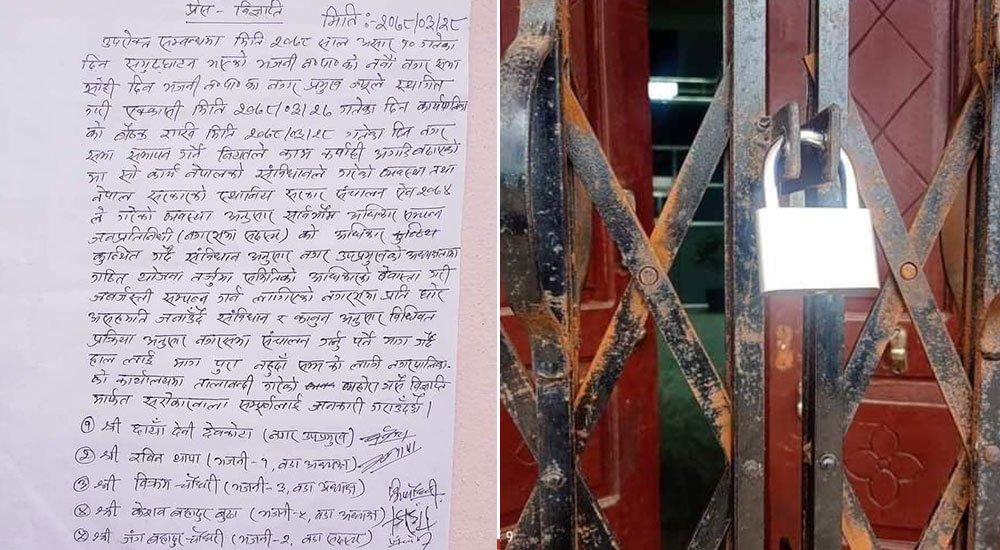 प्रेस - विज्ञप्ति
मिति :- २०७८/०३/२८
उपरोक्त सम्बन्धमा मिति २०७८ साल असार १० गतेका
दिन समुद्घाटन भएको भजनी न०पा० को नवौं नगर सभा
सोही दिन भजनी न०पा० का नगर प्रमुख ज्यूले स्थागित
गरी एक्कासी मिति २०७८/०३/२६ गतेका दिन कार्यपालिका
को बैठक राखि मिति २०७८/०३/२८ गतेका दिन नगर
सभा समापन गर्ने नियतले काम कार्वाही अगाडि बढाएको
मा सो कार्य नेपालको संविधानले गरेको व्यवस्था तथा
नेपाल सरकारको स्थानिय सरकार संचालन ऐन २०७४
ले गरेको व्यवस्था अनुसार सार्वभौम अधिकार सम्पन्न
जनप्रतिनिधी (नगरसभा सदस्य) को अधिकार
गर्दै संविधान अनुसार नगर उपप्रमुखको अध्यक्षतामा
गठित योजना तर्जुमा समितिको अधिकारको वेवास्ता गरी
जबर्जस्ती सम्पन्न गर्न लागिएको नगरसभा प्रति घोर
असहमति जनाउँदै संविधान र कानुन अनुसार विधिवत
प्रक्रिया अनुसार नगरसभा संचालन गर्नु पर्ने माग गर्दै
हाल लाई माग पुरा नहुदाँ सम्मको लागि नगरपालिका-
को कार्यालयमा तालाबन्दी गरेको व्यहोरा गर्दै विज्ञप्ति
मार्फत सरोकारवाला सम्पूर्णलाई जानकारी गराउँदछौं।
१ श्री छायाँ देवी देवकोटा (नगर उपप्रमुख)
२ श्री रबिन थापा (भजनी-१, वडा अध्यक्ष)
३ श्री विक्रम चौधरी (भजनी-३, वडा अध्यक्ष)
४ श्री केशव बहादुर बुढा (भजनी-५, वडा अध्यक्ष)
५ श्री जंग बहादुर चौधरी (भजनी-२, वडा सदस्य)